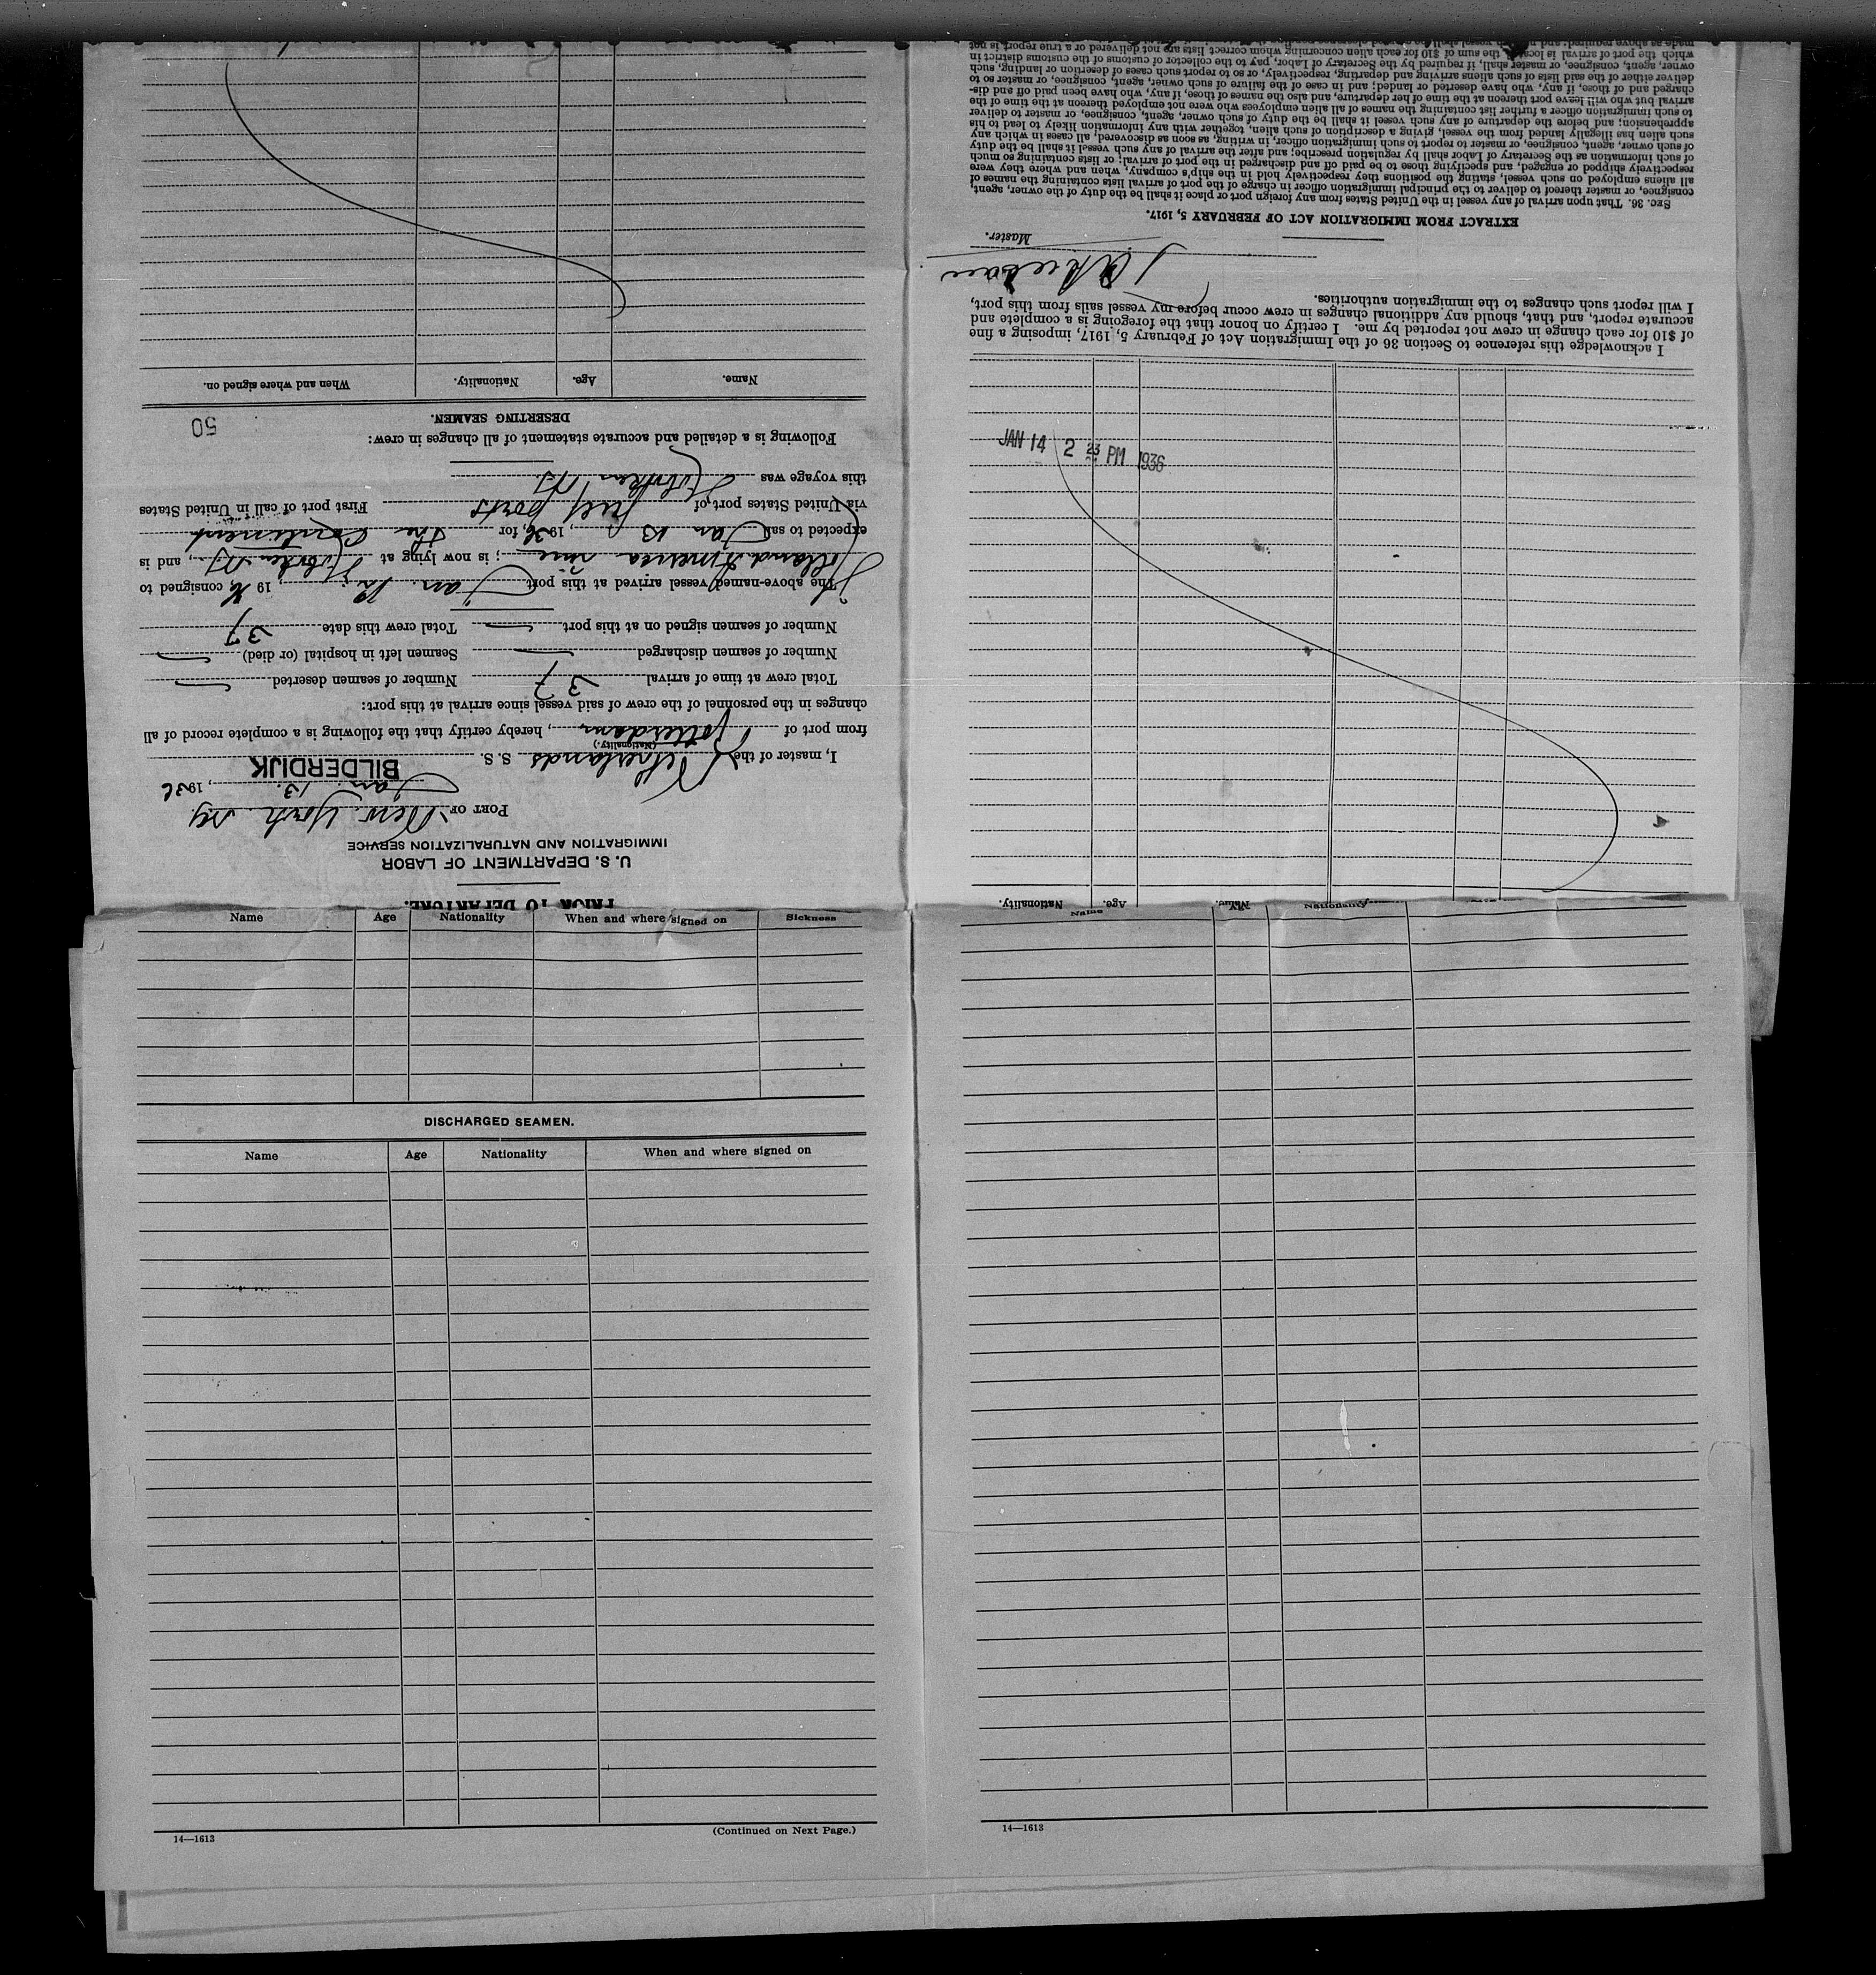 PRIOR TO DEPARTURE.
U. S. DEPARTMENT OF LABOR
IMMIGRATION AND NATURALIZATION SERVICE
PORT OF New York NY.
Jan. 13. , 1936
BILDERDIJK
I, master of the Netherlands S. S.
(Nationality.)
from port of Rotterdam, hereby certify that the following is a complete record of all
changes in the personnel of the crew of said vessel since arrival at this port:
Total crew at time of arrival 37 Number of seamen deserted
Number of seamen discharged Seamen left in hospital (or died)
Number of seamen signed on at this port Total crew this date 37
The above-named vessel arrived at this port Jan. , 1936, consigned to
Holland America Line ; is now lying at Hoboken NJ , and is
expected to sail Jan 13 , 1936, for the Continent
via United States port of Gulf ports First port of call in United States
this voyage was Hoboken NJ
Following is a detailed and accurate statement of all changes in crew:
50
DESERTING SEAMEN.
Name. Age. Nationality. When and where signed on.
Nationality. Age. Name.
JAN 14 2 23 PM 1936
I acknowledge this reference to Section 36 of the Immigration Act of February 5, 1917, imposing a fine
of $10 for each change in crew not reported by me. I certify on honor that the foregoing is a complete and
accurate report, and that, should any additional changes in crew occur before my vessel sails from this port,
I will report such changes to the immigration authorities.
Master.
EXTRACT FROM IMMIGRATION ACT OF FEBRUARY 5, 1917.
SEC. 36. That upon arrival of any vessel in the United States from any foreign port or place it shall be the duty of the owner, agent,
consignee, or master thereof to deliver to the principal immigration officer in charge of the port of arrival lists containing the names of
all aliens employed on such vessel, stating the positions they respectively hold in the ship's company, when and where they were
respectively shipped or engaged, and specifying those to be paid off and discharged in the port of arrival; or lists containing so much
of such information as the Secretary of Labor shall by regulation prescribe; and after the arrival of any such vessel it shall be the duty
of such owner, agent, consignee, or master to report to such immigration officer, in writing, as soon as discovered, all cases in which any
such alien has illegally landed from the vessel, giving a description of such alien, together with any information likely to lead to his
apprehension; and before the departure of any such vessel it shall be the duty of such owner, agent, consignee, or master to deliver
to such immigration officer a further list containing the names of all alien employees who were not employed thereon at the time of the
arrival but who will leave port thereon at the time of her departure, and also the names of those, if any, who have been paid off and dis-
charged and of those, if any, who have deserted or landed; and in case of the failure of such owner, agent, consignee, or master so to
deliver either of the said lists of such aliens arriving and departing, respectively, or so to report such cases of desertion or landing, such
owner, agent, consignee, or master shall, if required by the Secretary of Labor, pay to the collector of customs of the customs district in
which the port of arrival is located the sum of $10 for each alien concerning whom correct lists are not delivered or a true report is not
made as above required; and no such vessel shall be
Name Age Nationality When and where signed on Sickness
DISCHARGED SEAMEN.
Name Age Nationality When and where signed on
14—1613 (Continued on Next Page.)
Name Nationality
14—1613